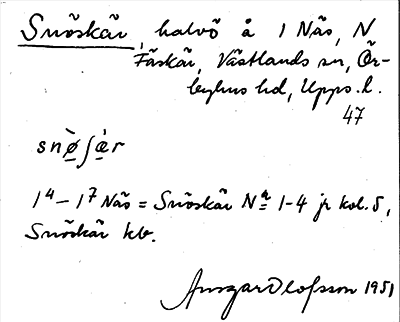 Snöskär, halvö å 1 Näs, N
Fäskär, Västlands sn, Ör-
byhus hd, Upps. l.
47
snø̀ʃæ̀r
1⁴ – 1⁷ Näs = Snöskär Nr 1-4 jr kol. 5,
Snöskär kb.
Ansgar Olofsson 1951